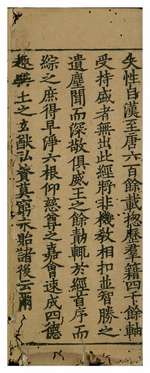 失性自漢至唐六百餘載揔歷羣籍四千餘軸
受持盛者無出此經將非機教相扣並智勝之
遺塵聞而深敬俱威王之餘勣輒於經首序而
綜之庶得早淨六根仰慈尊之嘉會速成四德
趣樂土之玄猷弘賛莫窮永貽諸後云爾